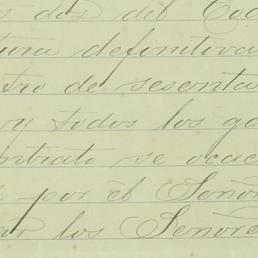 s dos del Cod
tura definitiva
tro de sesenta
y todos los ga
ontrato se ocac
por el Señor
los Señore